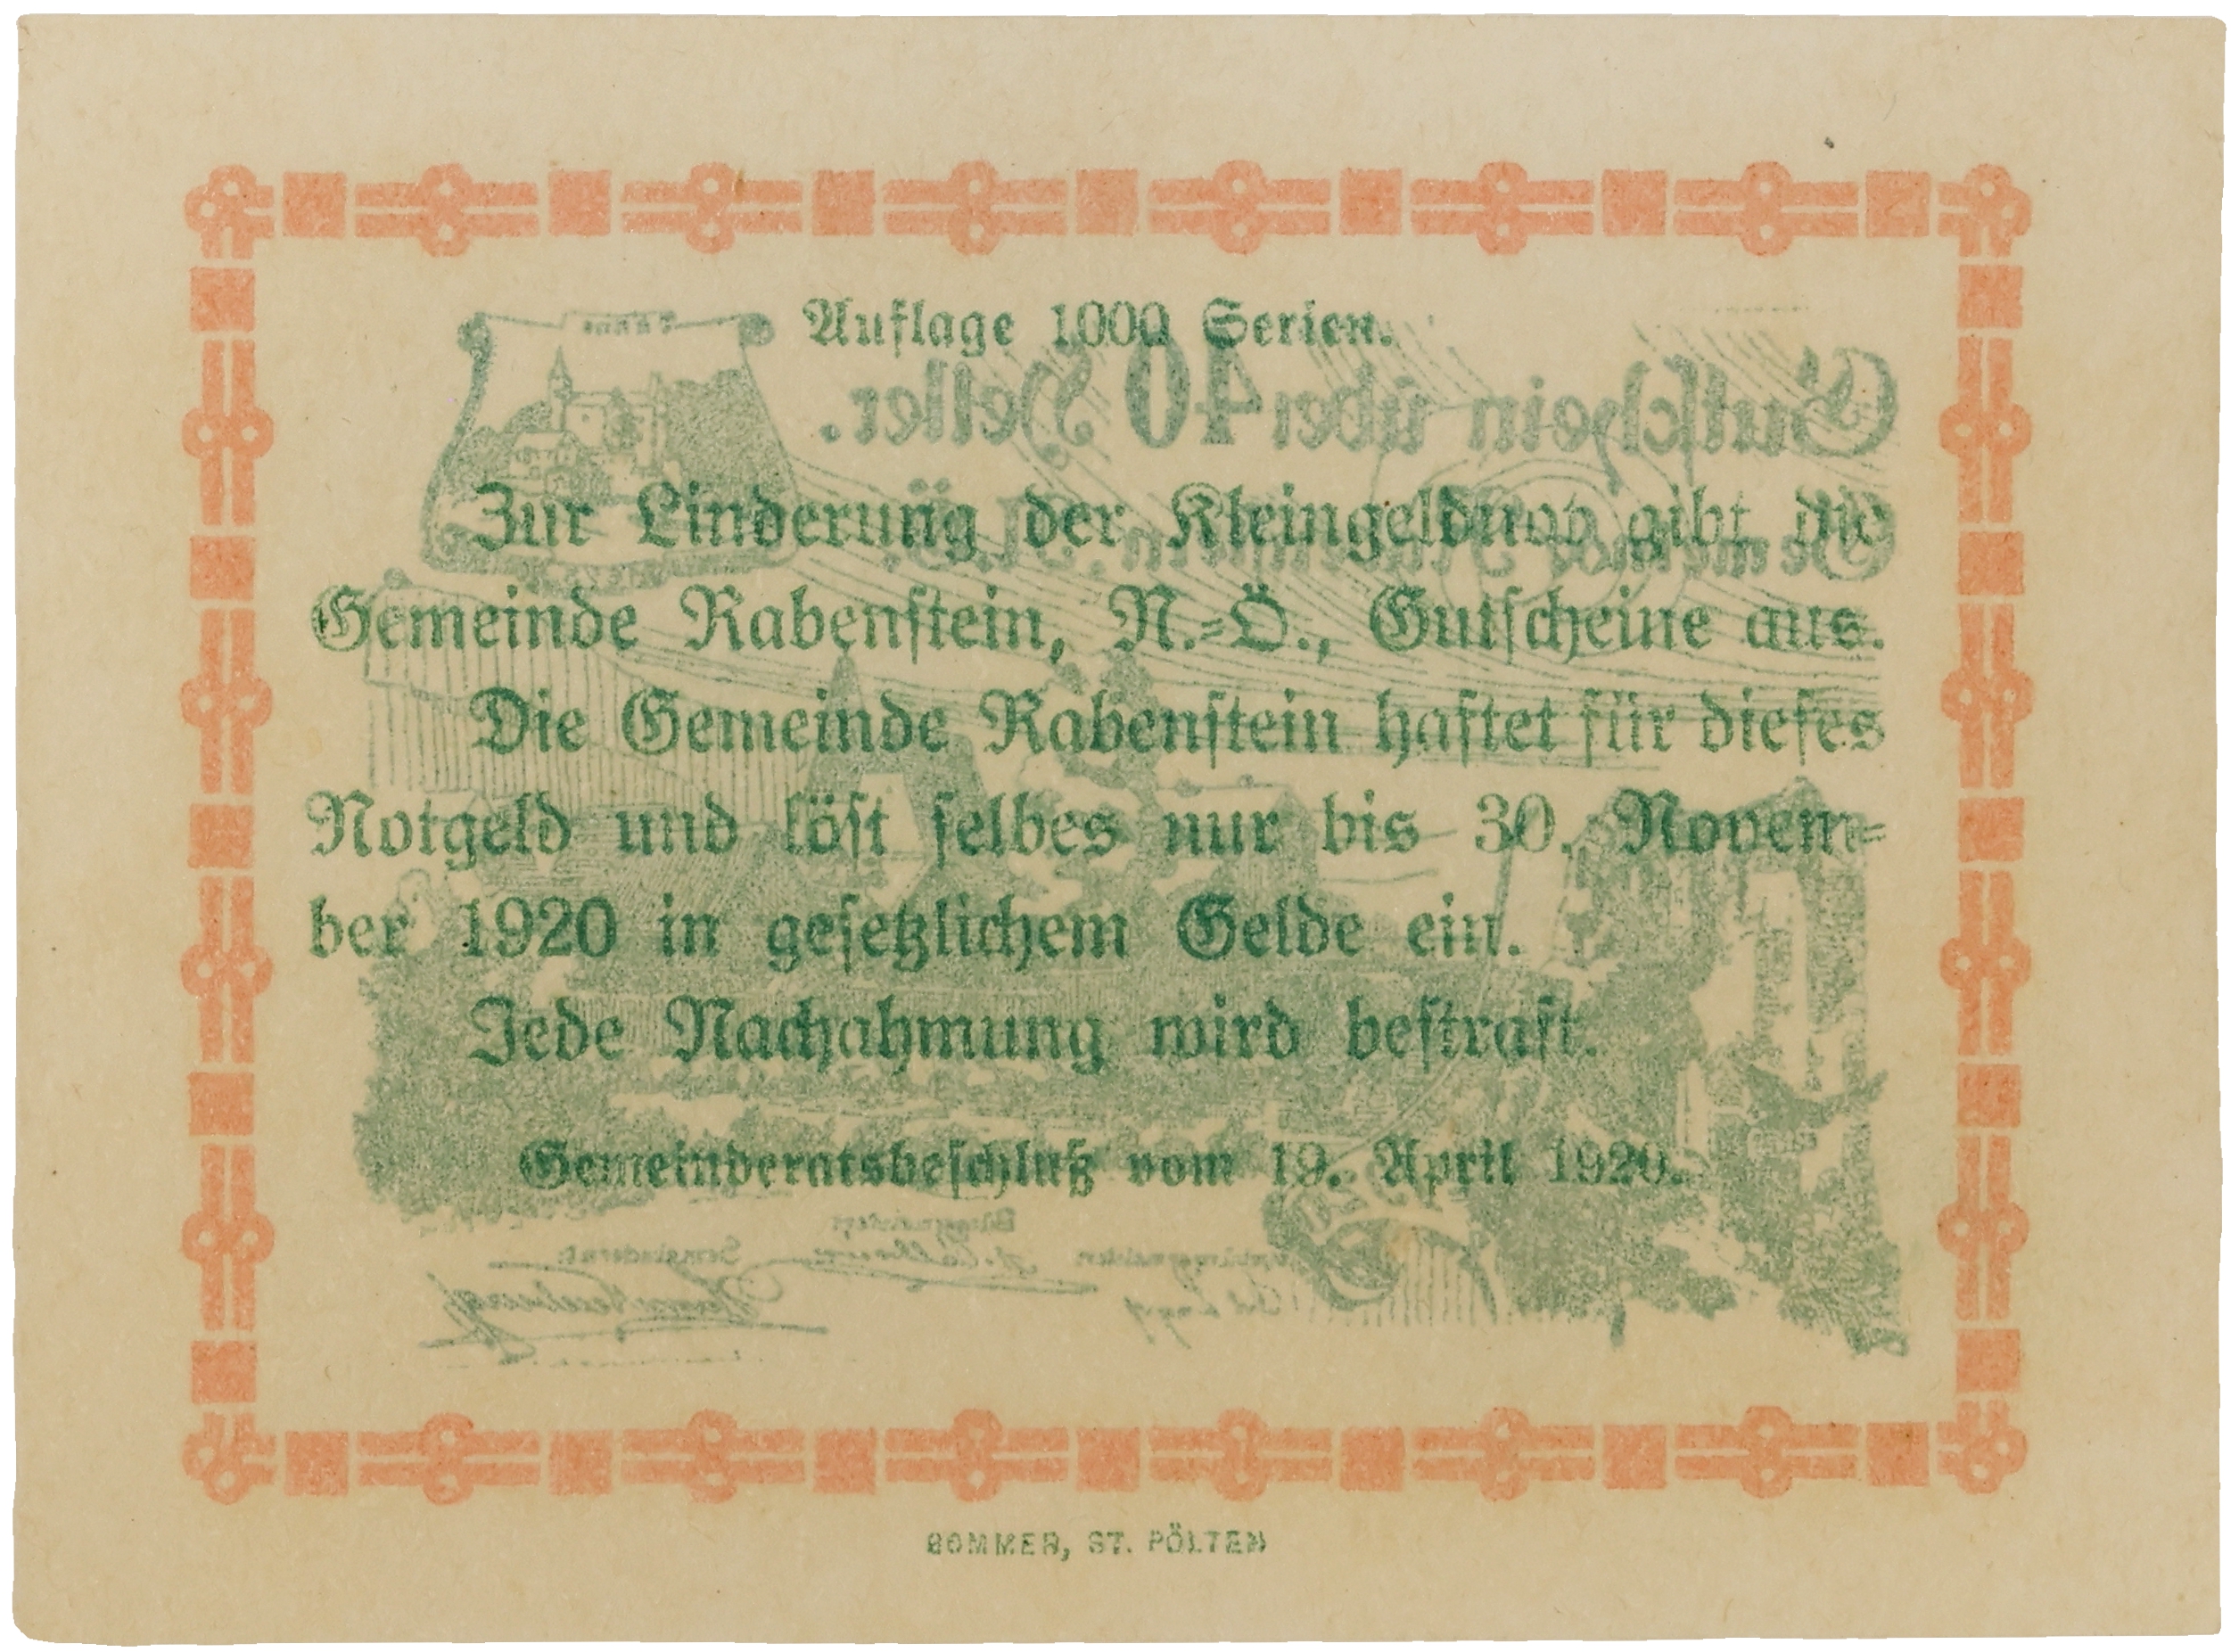 Auflage 1000 Serien.
Gutschein über 40 Heller.
Zur Linderung der Kleingeldnot gibt die
Gemeinde Rabenstein, N.=Ö., Gutscheine aus.
Die Gemeinde Rabenstein haftet für dieses
Notgeld und löst selbes nur bis 30. Novem=
ber 1920 in gesetzlichem Gelde ein.
Jede Nachahmung wird bestraft.
Gemeinderatsbeschluß vom 19. April 1920.
Bürgermeister:
Gemeinderat:
SOMMER, ST. PÖLTEN